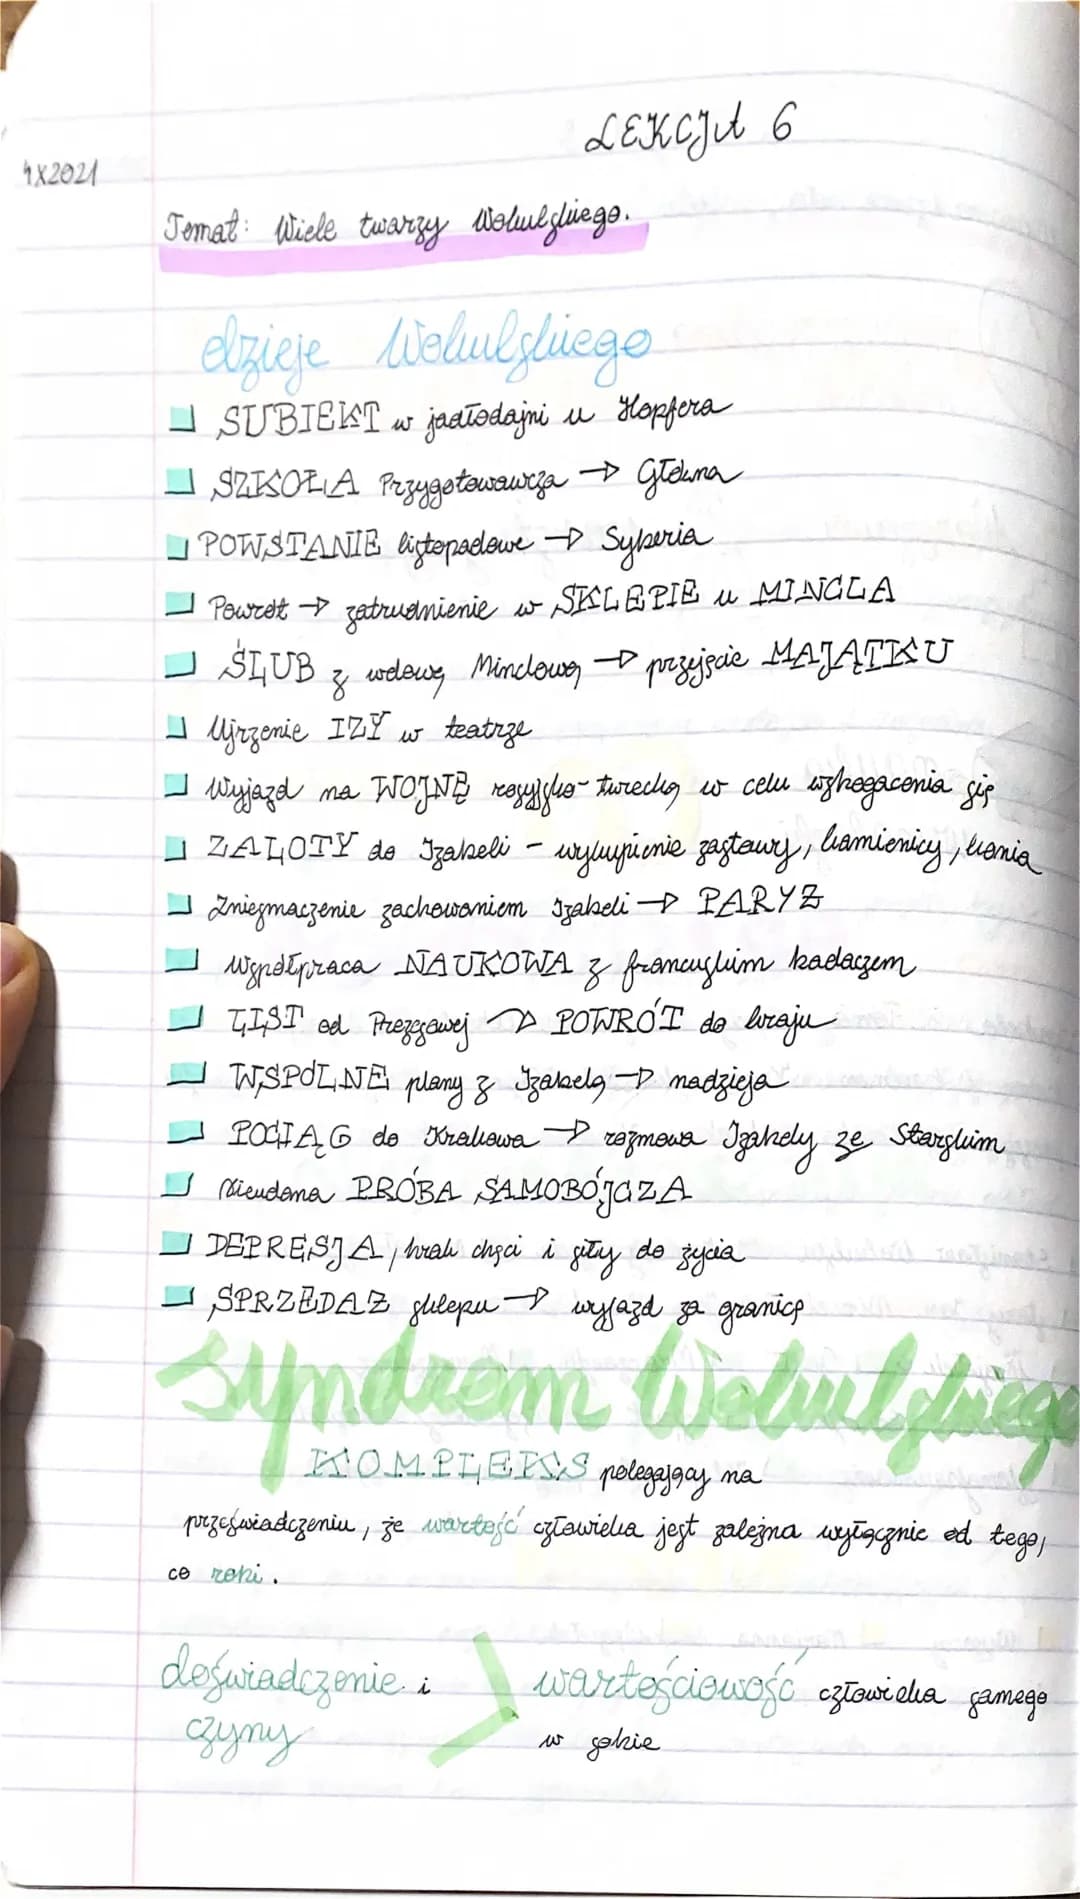 LEKCJA 6
4X2021
Temat: Wiele twarzy Wokulskiego.
dzieje Wokulskiego
SUBIEKT w jadłodajni u Hopfera
SZKOŁA Przygotowawcza → Główna
POWSTANIE listopadowe → Syberia
Powrót → zatrudnienie w SKLEPIE u MINCLA
ŚLUB z wdową Minclową → przejście MAJĄTKU
Ujrzenie IZY w teatrze
Wyjazd na WOJNĘ rosyjsko-turecką w celu wzbogacenia się
ZALOTY do Izabeli - wykupienie zastawy, kamienicy, konia
Zniesmaczenie zachowaniem Izabeli → PARYŻ
Współpraca NAUKOWA z francuskim badaczem
LIST od Prezesowej → POWRÓT do kraju
WSPÓLNE plany z Izabelą → nadzieja
POCIĄG do Krakowa → rozmowa Izabely ze Starskim
Nieudana PRÓBA SAMOBÓJCZA
DEPRESJA, brak chęci i siły do życia
SPRZEDAŻ sklepu → wyjazd za granicę
Syndrom Wokulskiego
KOMPLEKS polegający na
przeświadczeniu, że wartość człowieka jest zależna wyłącznie od tego,
co robi.
doświadczenie i > wartościowość człowieka samego
czyny w sobie